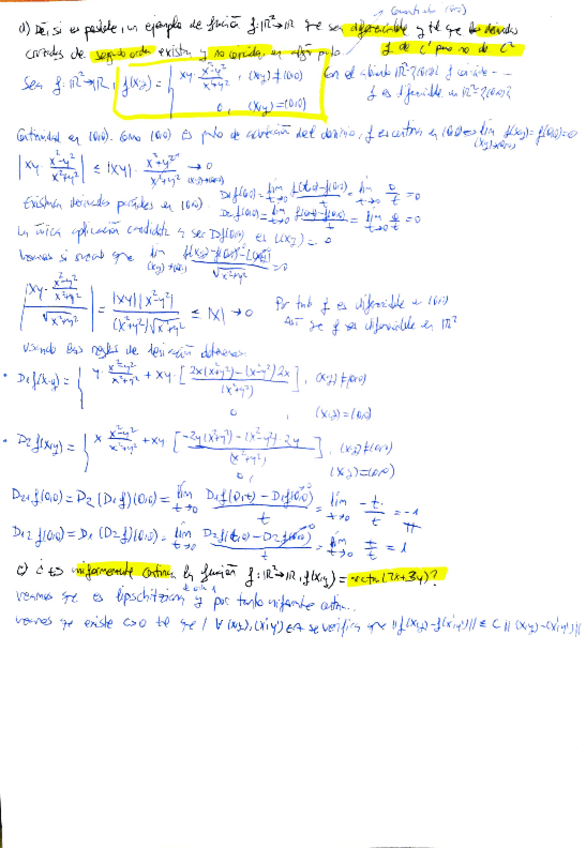 (contraste (no))
d) Dé, si es posible, un ejemplo de función f: ℝ²→ℝ que sea diferenciable y tal que las derivadas
cruzadas de segundo orden existan y no coincidan en algún punto. f de C¹ pero no de C²
Sea f: ℝ²→ℝ, f(x,y) = { xy · (x²-y²)/(x²+y²), (x,y) ≠ (0,0)
0, (x,y) = (0,0)
Con el abierto ℝ²\{(0,0)} f coincide ...
f es diferenciable en ℝ²\{(0,0)}
Continuidad en (0,0). Como (0,0) es punto de acumulación del dominio, f es continua en (0,0) ⇔ lím (x,y)→(0,0) f(x,y) = f(0,0) = 0
|xy · (x²-y²)/(x²+y²)| ≤ |xy| · (x²+y²)/(x²+y²) → 0 (x,y)→(0,0)
Existen derivadas parciales en (0,0). D₁f(0,0) = lím t→0 (f(t,0)-f(0,0))/t = lím t→0 0/t = 0
D₂f(0,0) = lím t→0 (f(0,t)-f(0,0))/t = lím t→0 0/t = 0
La única aplicación candidata a ser Df(0,0) es L(x,y) = 0
Veamos si ocurre que lím (x,y)→(0,0) (f(x,y)-f(0,0)-L(x,y))/√(x²+y²) = 0
|xy · (x²-y²)/(x²+y²) / √(x²+y²)| = |xy||x²-y²| / (x²+y²)√(x²+y²) ≤ |x| → 0
Por tanto f es diferenciable en (0,0)
Así que f es diferenciable en ℝ²
Usando las reglas de derivación obtenemos
• D₁f(x,y) = { y · (x²-y²)/(x²+y²) + xy · [(2x(x²+y²)-(x²-y²)2x)/(x²+y²)²], (x,y) ≠ (0,0)
0, (x,y) = (0,0)
• D₂f(x,y) = { x (x²-y²)/(x²+y²) + xy [(-2y(x²+y²)-(x²-y²)·2y)/(x²+y²)²], (x,y) ≠ (0,0)
0, (x,y) = (0,0)
D₂₁f(0,0) = D₂(D₁f)(0,0) = lím t→0 (D₁f(0,t) - D₁f(0,0))/t = lím t→0 -t/t = -1
D₁₂f(0,0) = D₁(D₂f)(0,0) = lím t→0 (D₂f(t,0) - D₂f(0,0))/t = lím t→0 t/t = 1
e) ¿Es uniformemente continua la función f: ℝ²→ℝ, f(x,y) = arctan(2x+3y)?
veamos que es lipschitziana y por tanto uniformemente contin...
veamos que existe c>0 tal que / ∀(x,y),(x',y')∈A se verifica que ||f(x,y)-f(x',y')|| ≤ C||(x,y)-(x',y')||